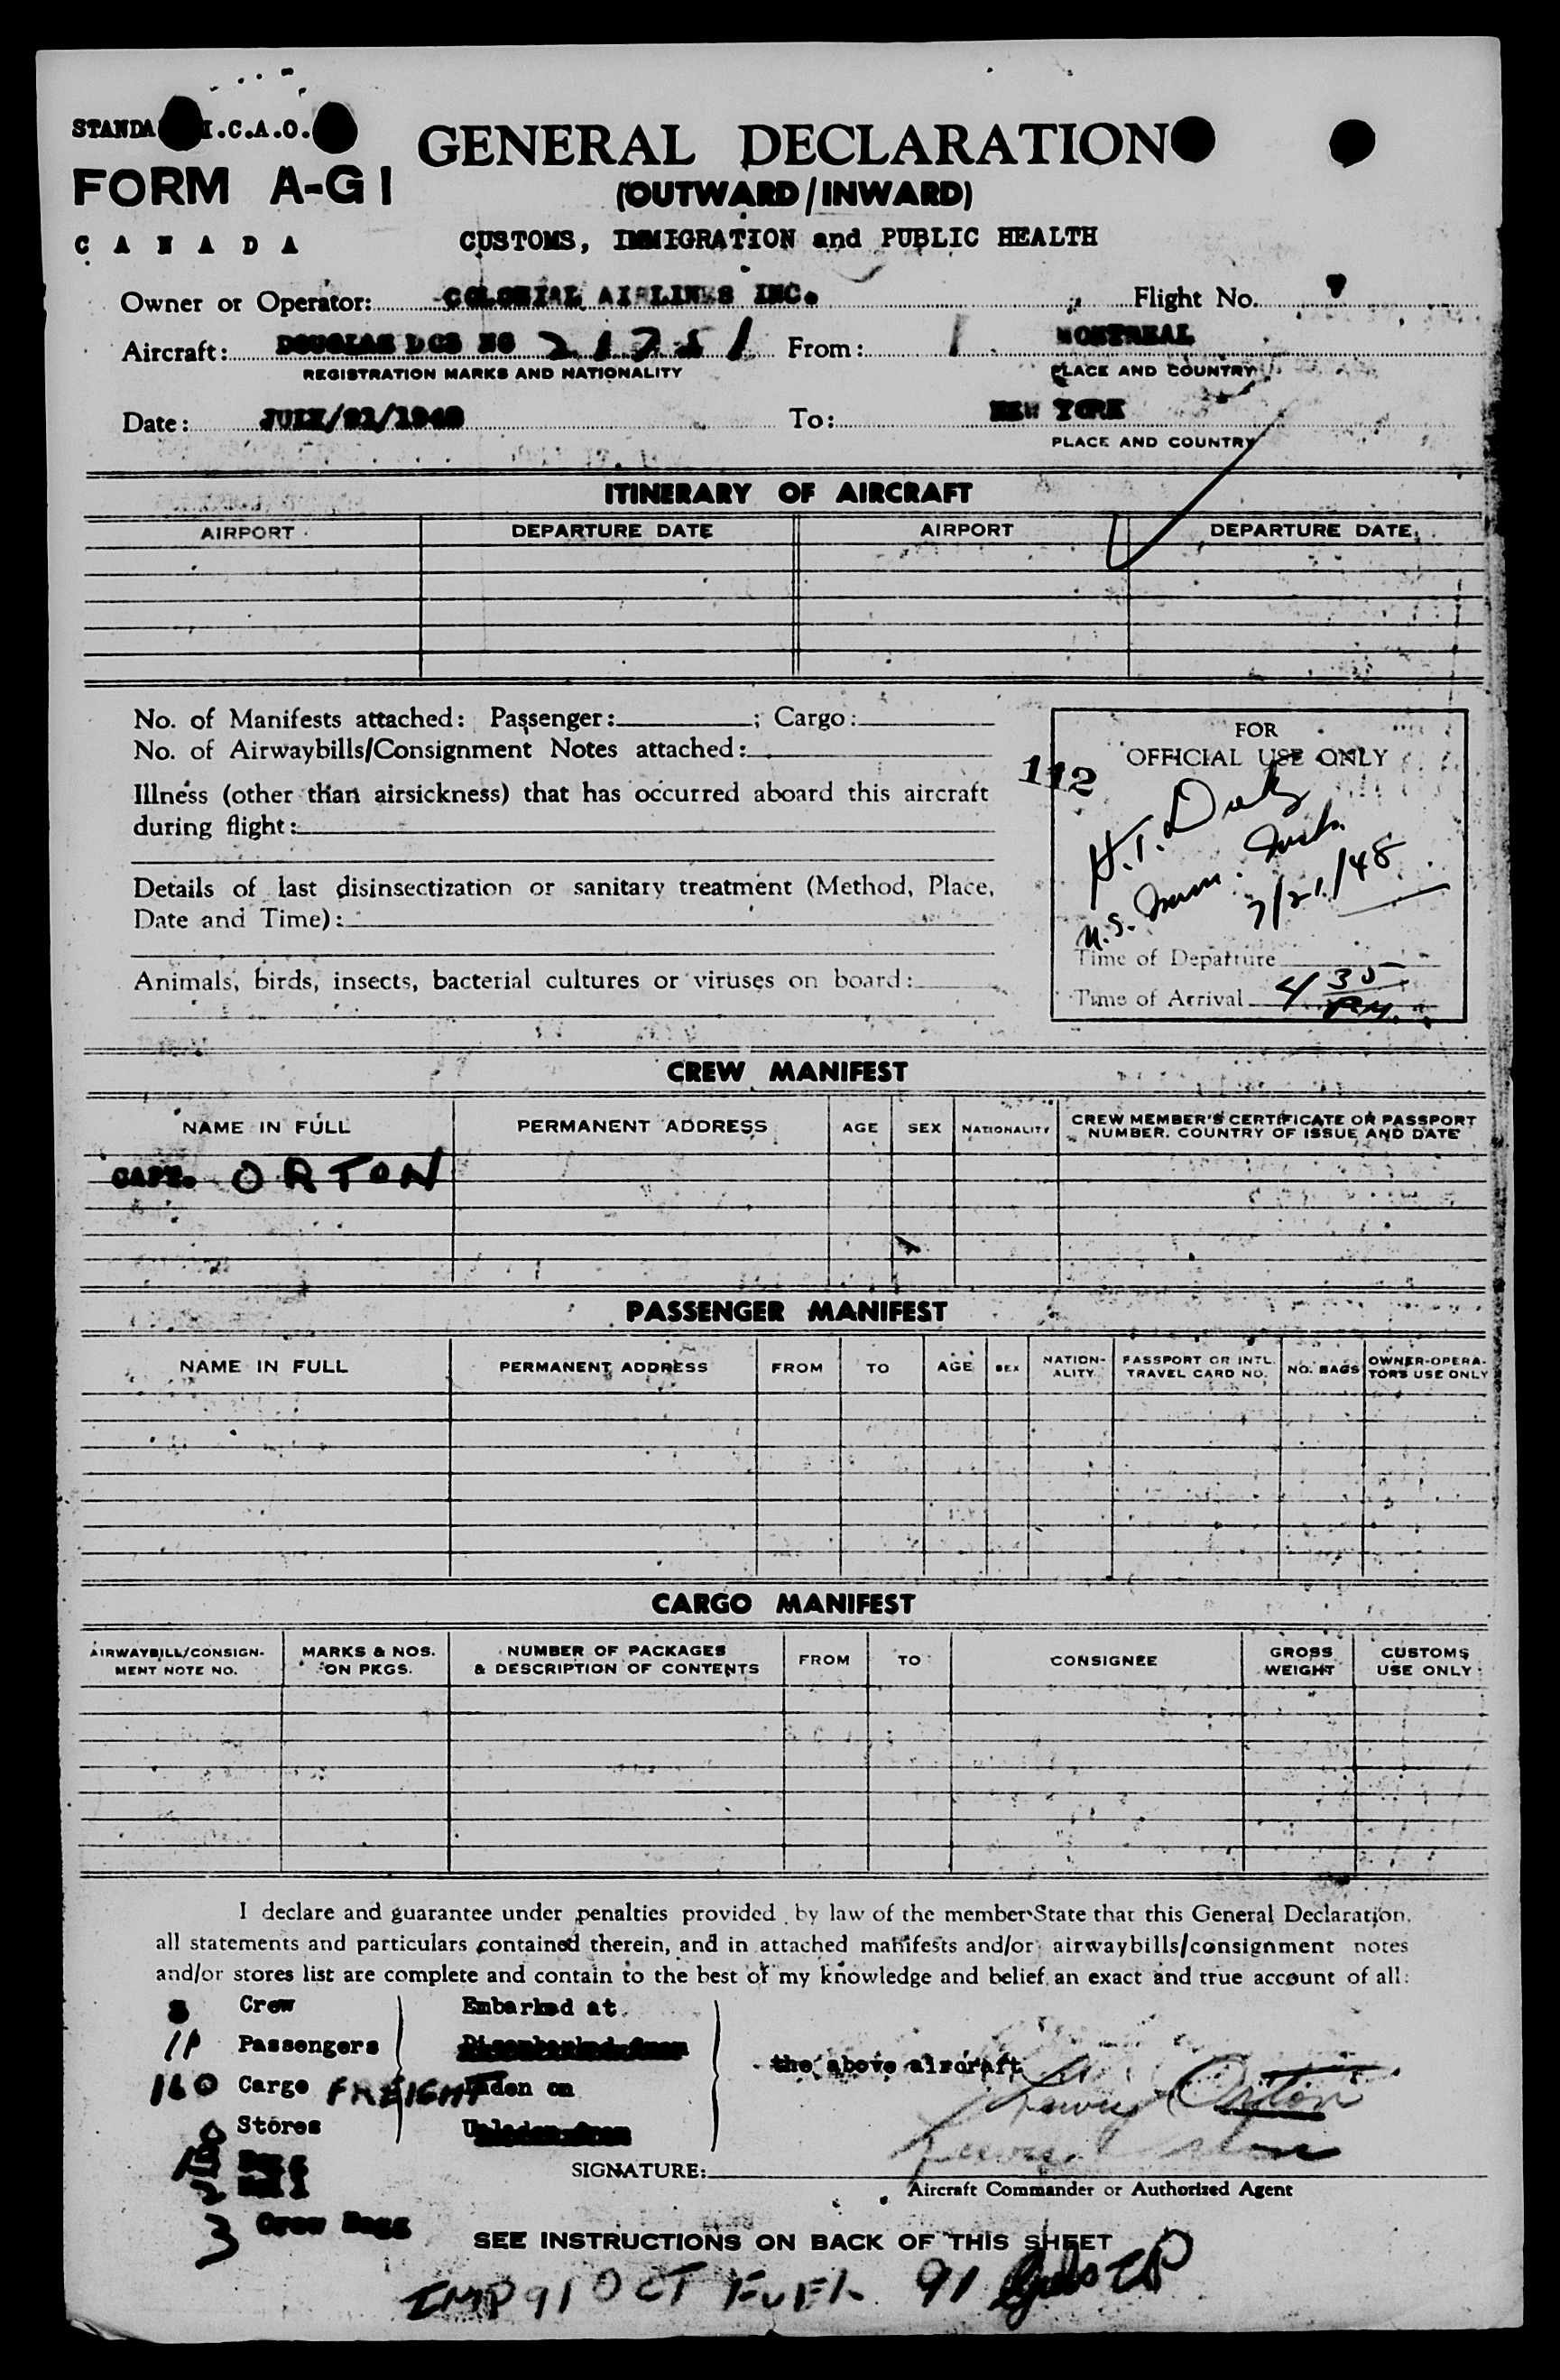 STANDA I.C.A.O.
FORM A-G1
CANADA
GENERAL DECLARATION
(OUTWARD/INWARD)
CUSTOMS, IMMIGRATION and PUBLIC HEALTH
Owner or Operator: COLONIAL AIRLINES INC. Flight No.
Aircraft: DOUGLAS DC3 NC 21751 From: MONTREAL
REGISTRATION MARKS AND NATIONALITY PLACE AND COUNTRY
Date: JULY/21/1948 To: NEW YORK
PLACE AND COUNTRY
ITINERARY OF AIRCRAFT
AIRPORT DEPARTURE DATE AIRPORT DEPARTURE DATE
No. of Manifests attached: Passenger: ; Cargo:
No. of Airwaybills/Consignment Notes attached:
Illness (other than airsickness) that has occurred aboard this aircraft
during flight:
Details of last disinsectization or sanitary treatment (Method, Place,
Date and Time):
Animals, birds, insects, bacterial cultures or viruses on board:
FOR
OFFICIAL USE ONLY
112
H.T.
U.S. Imm. Insp.
7/21/48
Time of Departure
Time of Arrival 4 35 P.M.
CREW MANIFEST
NAME IN FULL PERMANENT ADDRESS AGE SEX NATIONALITY CREW MEMBER'S CERTIFICATE OR PASSPORT
NUMBER, COUNTRY OF ISSUE AND DATE
CAPT. ORTON
PASSENGER MANIFEST
NAME IN FULL PERMANENT ADDRESS FROM TO AGE SEX NATION-
ALITY PASSPORT OR INTL.
TRAVEL CARD NO. NO. BAGS OWNER-OPERA-
TORS USE ONLY
CARGO MANIFEST
AIRWAYBILL/CONSIGN-
MENT NOTE NO. MARKS & NOS.
ON PKGS. NUMBER OF PACKAGES
& DESCRIPTION OF CONTENTS FROM TO CONSIGNEE GROSS
WEIGHT CUSTOMS
USE ONLY
I declare and guarantee under penalties provided by law of the member State that this General Declaration,
all statements and particulars contained therein, and in attached manifests and/or airwaybills/consignment notes
and/or stores list are complete and contain to the best of my knowledge and belief an exact and true account of all:
3 Crew Embarked at
11 Passengers Disembarked from
160 Cargo FREIGHT Laden on
the above aircraft
Stores Unladen from
SIGNATURE: Orton
Aircraft Commander or Authorized Agent
3 Crew Bags
SEE INSTRUCTIONS ON BACK OF THIS SHEET
IMP 91 OCT FUEL 91 Gals